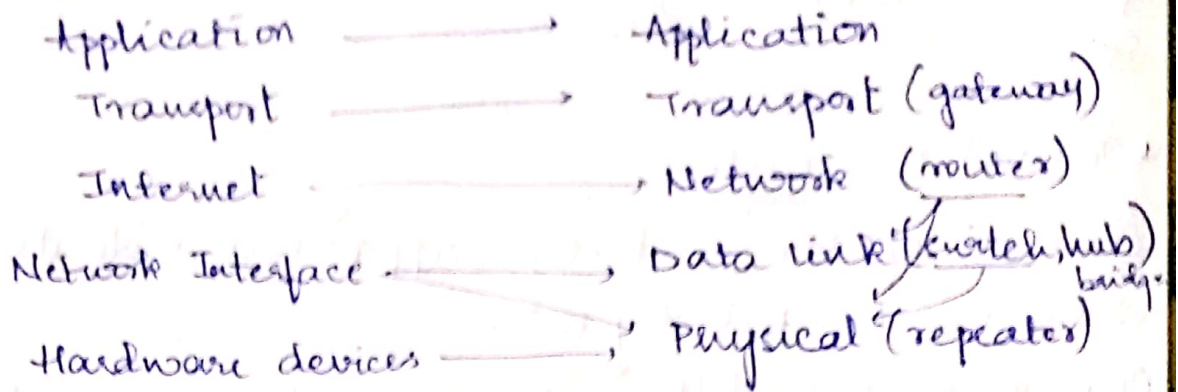 Application → Application
Transport → Transport (gateway)
Internet → Network (router)
Network Interface → Data link (switch, hub)
bridg
Hardware devices → Physical (repeater)